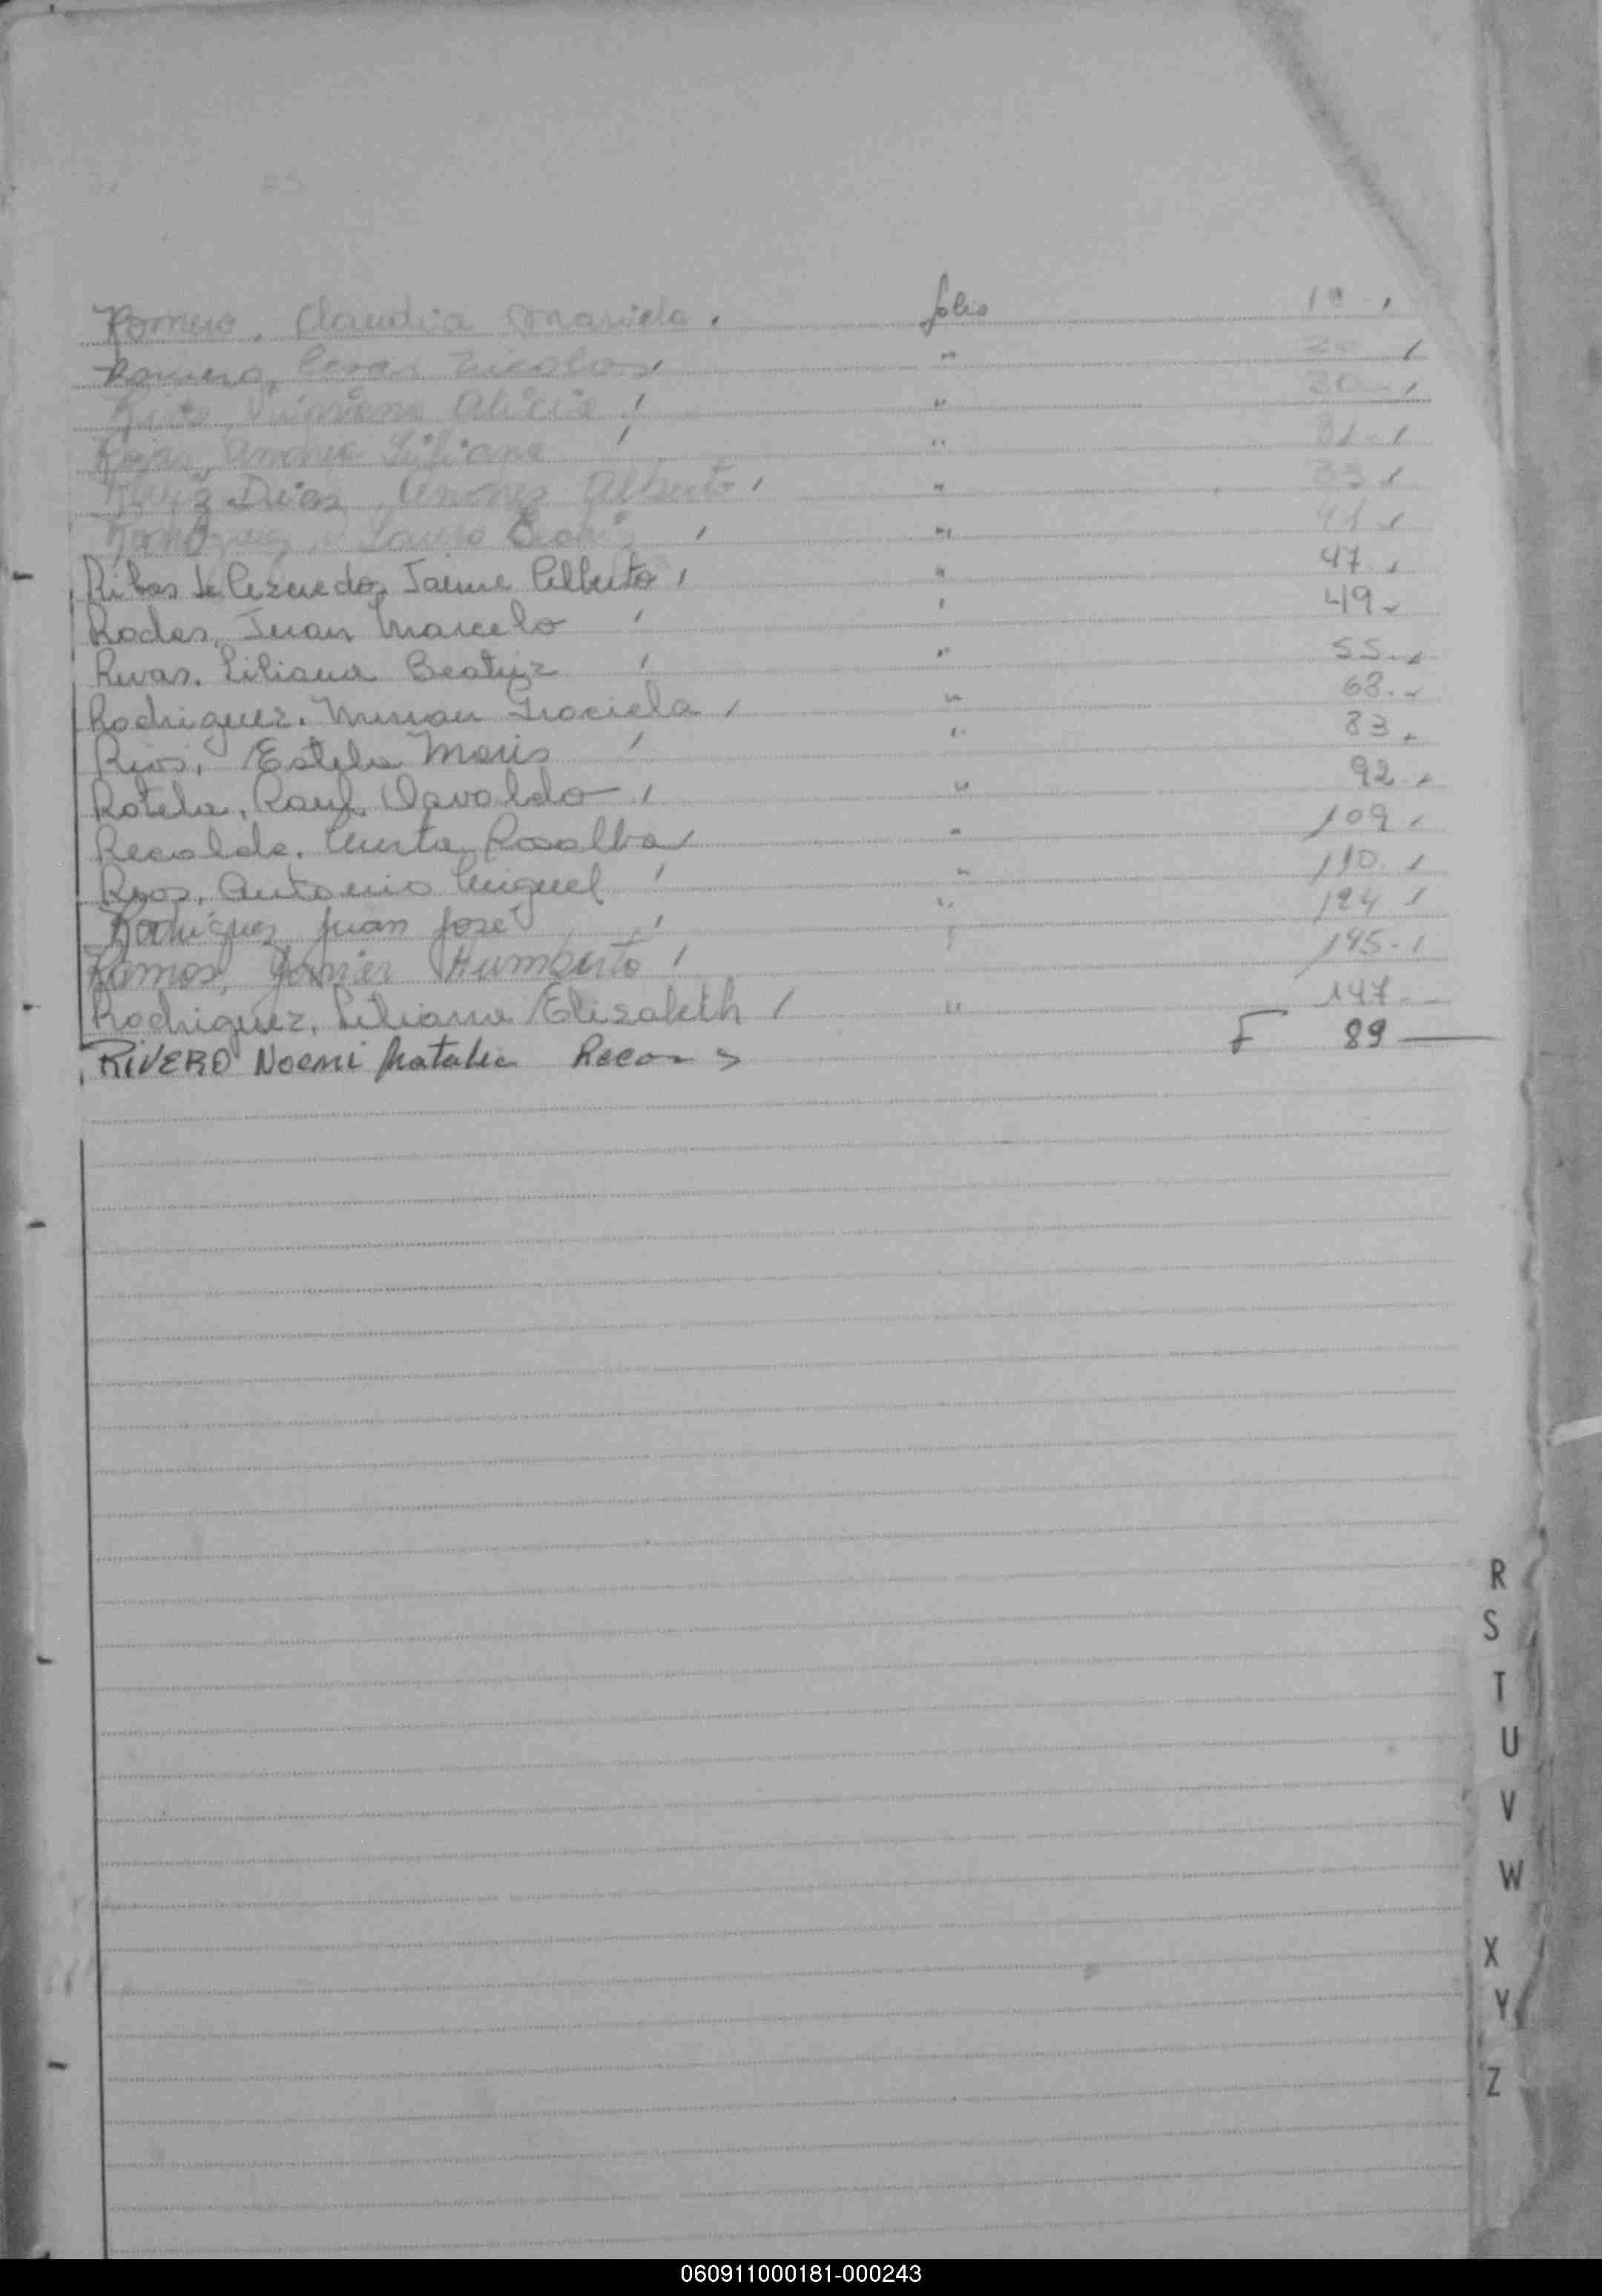 Romero, Claudia Mariela. folio 1
Romero, Cesar Nicolas, " 20
Viviana Alicia " 30
Rojas, Andrea Liliana " 31
Ruiz Diaz, Andres Alberto " 33
Rodriguez, Laura Beatriz " 41
Ribas de Acevedo, Jaime Alberto " 47
Rodas, Juan Marcelo " 49
Rivas. Liliana Beatriz " 55
Rodriguez. Mirian Graciela " 68
Rios, Estela Maris " 83
Rotela, Raul Osvaldo " 92
Recalde, Mirta Rosalba " 109
Rios, Antonio Miguel " 110
Rodriguez Juan José " 124
Ramos, Javier Humberto " 145
Rodriguez, Liliana Elizabeth " 147
RIVERO Noemi Natalia Recon F 89
R
S
T
U
V
W
X
Y
Z
060911000181-000243